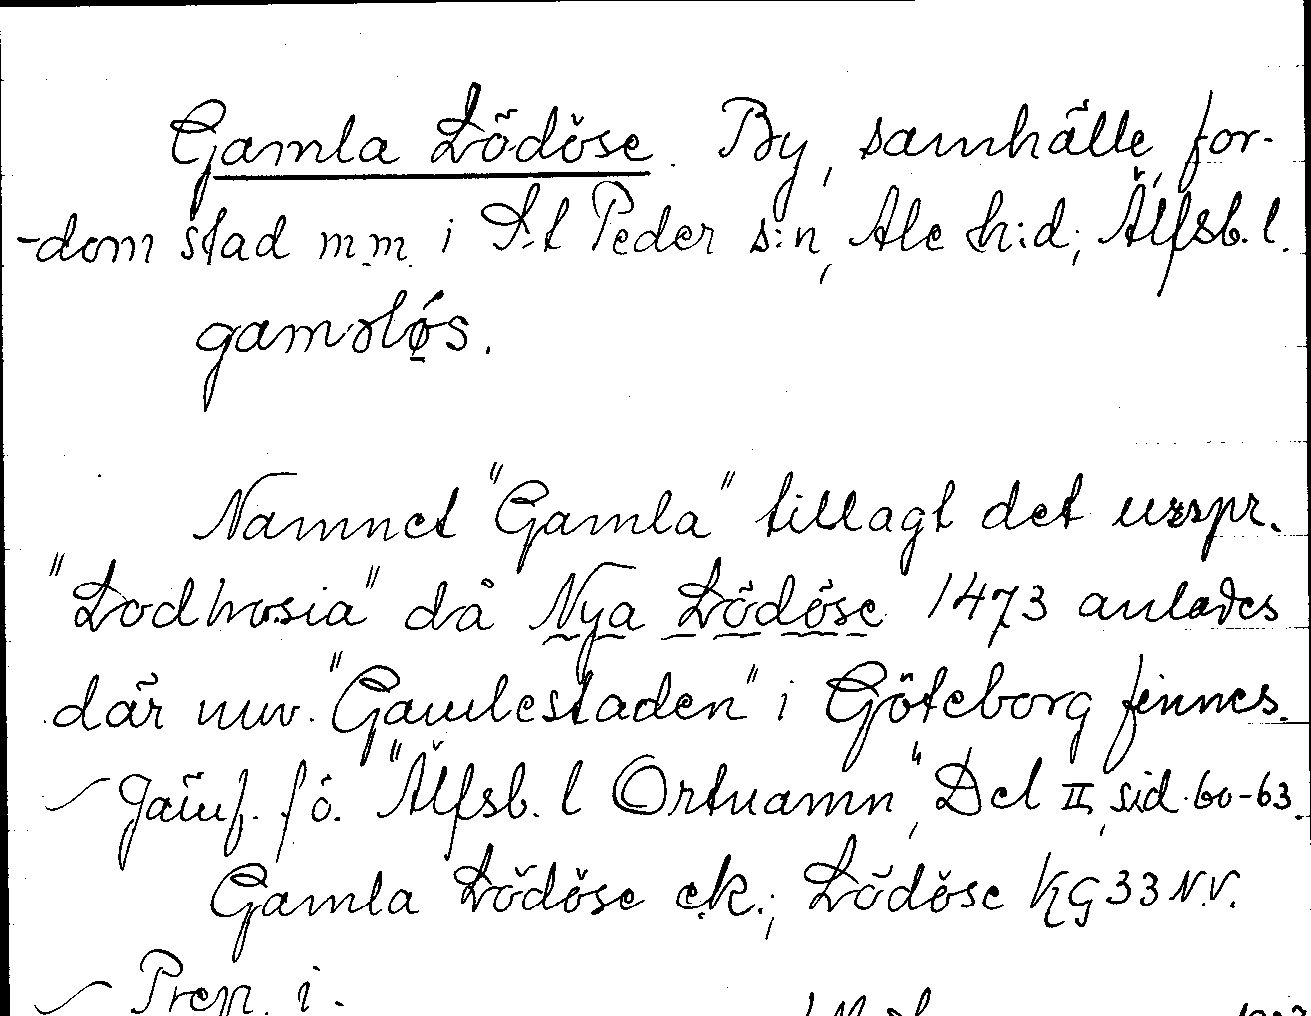 Gamla Lödöse. By, samhälle, for-
-dom stad m.m. i S:t Peder s:n, Ale h:d; Älfsb. l.
gamsløs.
Namnet "Gamla" tillagt det urspr.
"Lodhosia" då Nya Lödöse 1473 anlades
där nuv. "Gamlestaden" i Göteborg finnes.
Jämf. fö. "Älfsb. l Ortnamn", Del II, sid. 60-63.
Gamla Lödöse e.k.; Lödöse KG 33 N.V.
Prep. i.